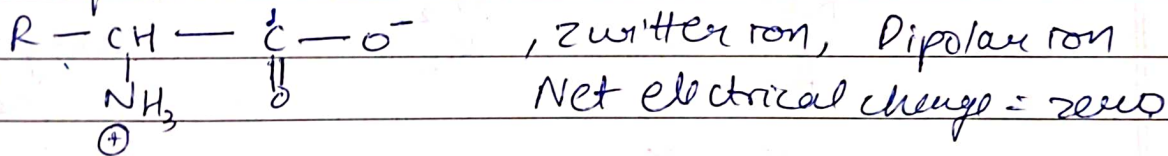 R — CH — C — O⁻ , zwitter ion, Dipolar ion
NH₃ O Net electrical charge = zero
⊕